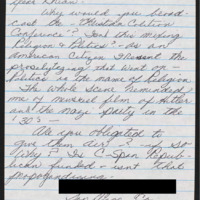 Dear Brian:
Why would you broad-
cast the "Christian Coalition
Conference"? Isn't this mixing
Religion & Politics? - As an
American Citizen I resent the
proselyting that went on -
Politics in the name of Religion
The whole scene reminded
me of newsreel film of Hitler
and the Nazi party in the
'30's -
Are you obligated to
give them air? - if so
Why? Is C-Span Repub-
lican friend - isn't that
propagandizing -